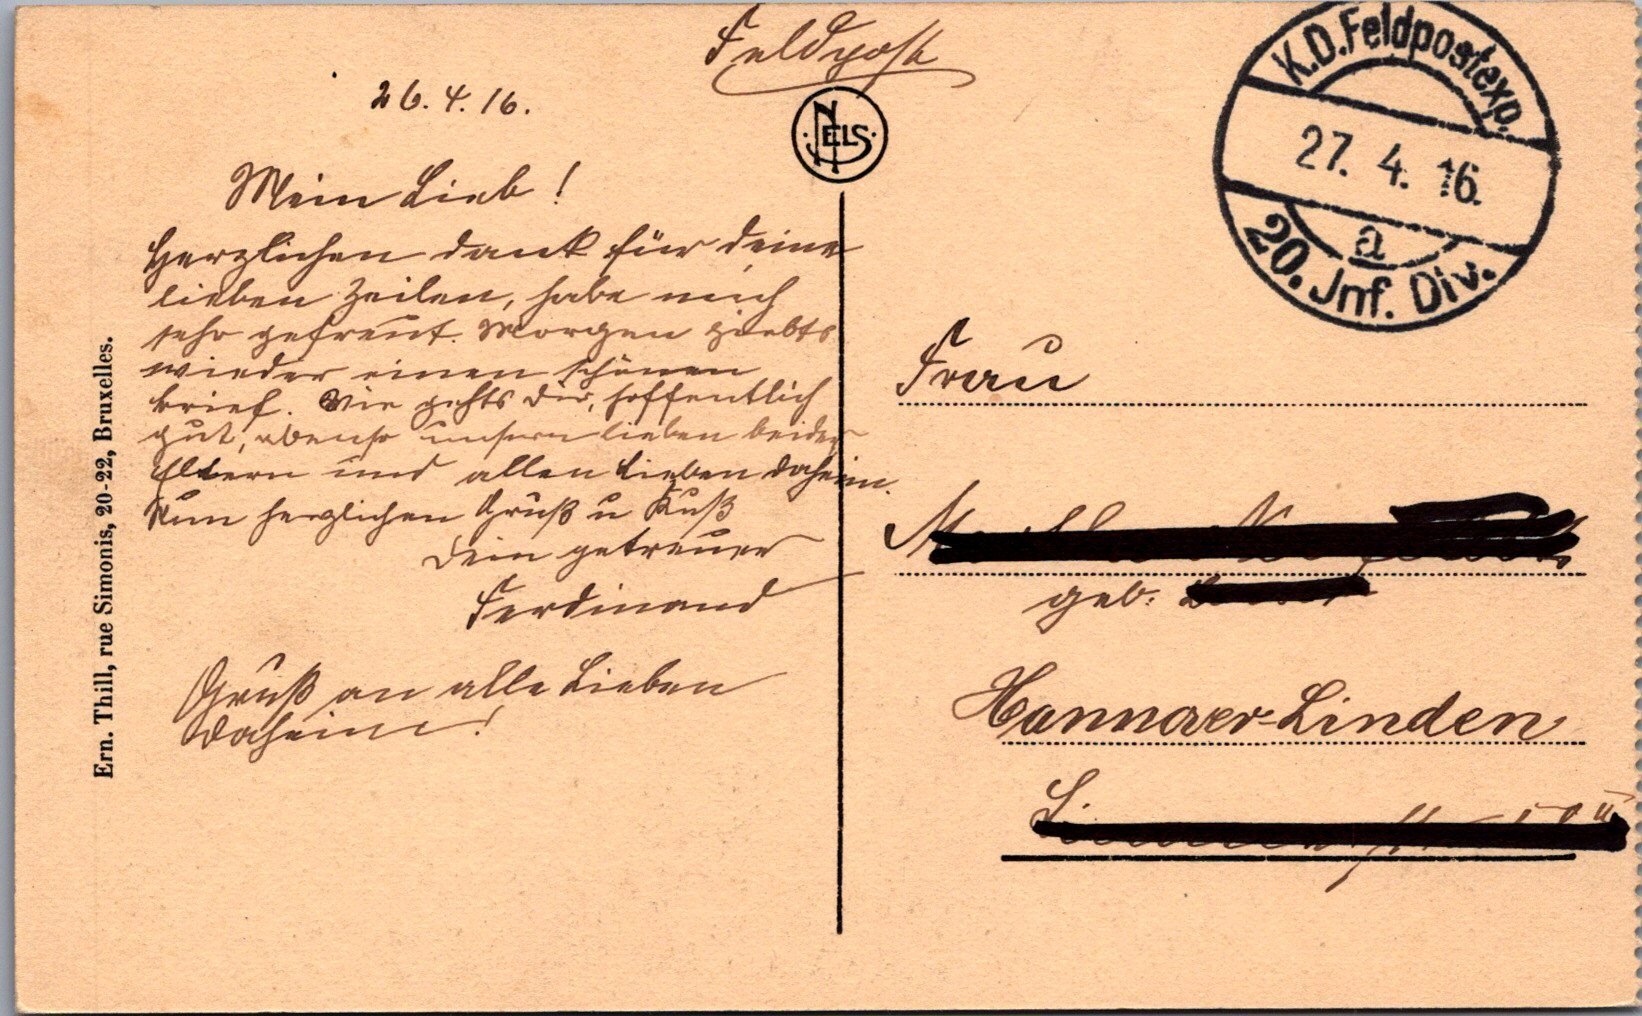 Feldpost
26. 4. 16.
NELS
K.D. Feldpostexp.
27. 4. 16.
a
20. Jnf. Div.
Mein Lieb!
Herzlichen dank für deine
lieben Zeilen, habe mich
sehr gefreut. Morgen giebts
wieder einen schönen
brief. Wie gehts Dir, hoffentlich
gut, ebenso unsern lieben beiden
Eltern und allen Lieben daheim.
Nun herzlichen Gruß u Kuß
Dein getreuer
Ferdinand
Gruß an alle Lieben
Daheim!
Ern. Thill, rue Simonis, 20-22, Bruxelles.
Frau
geb:
Hannover-Linden